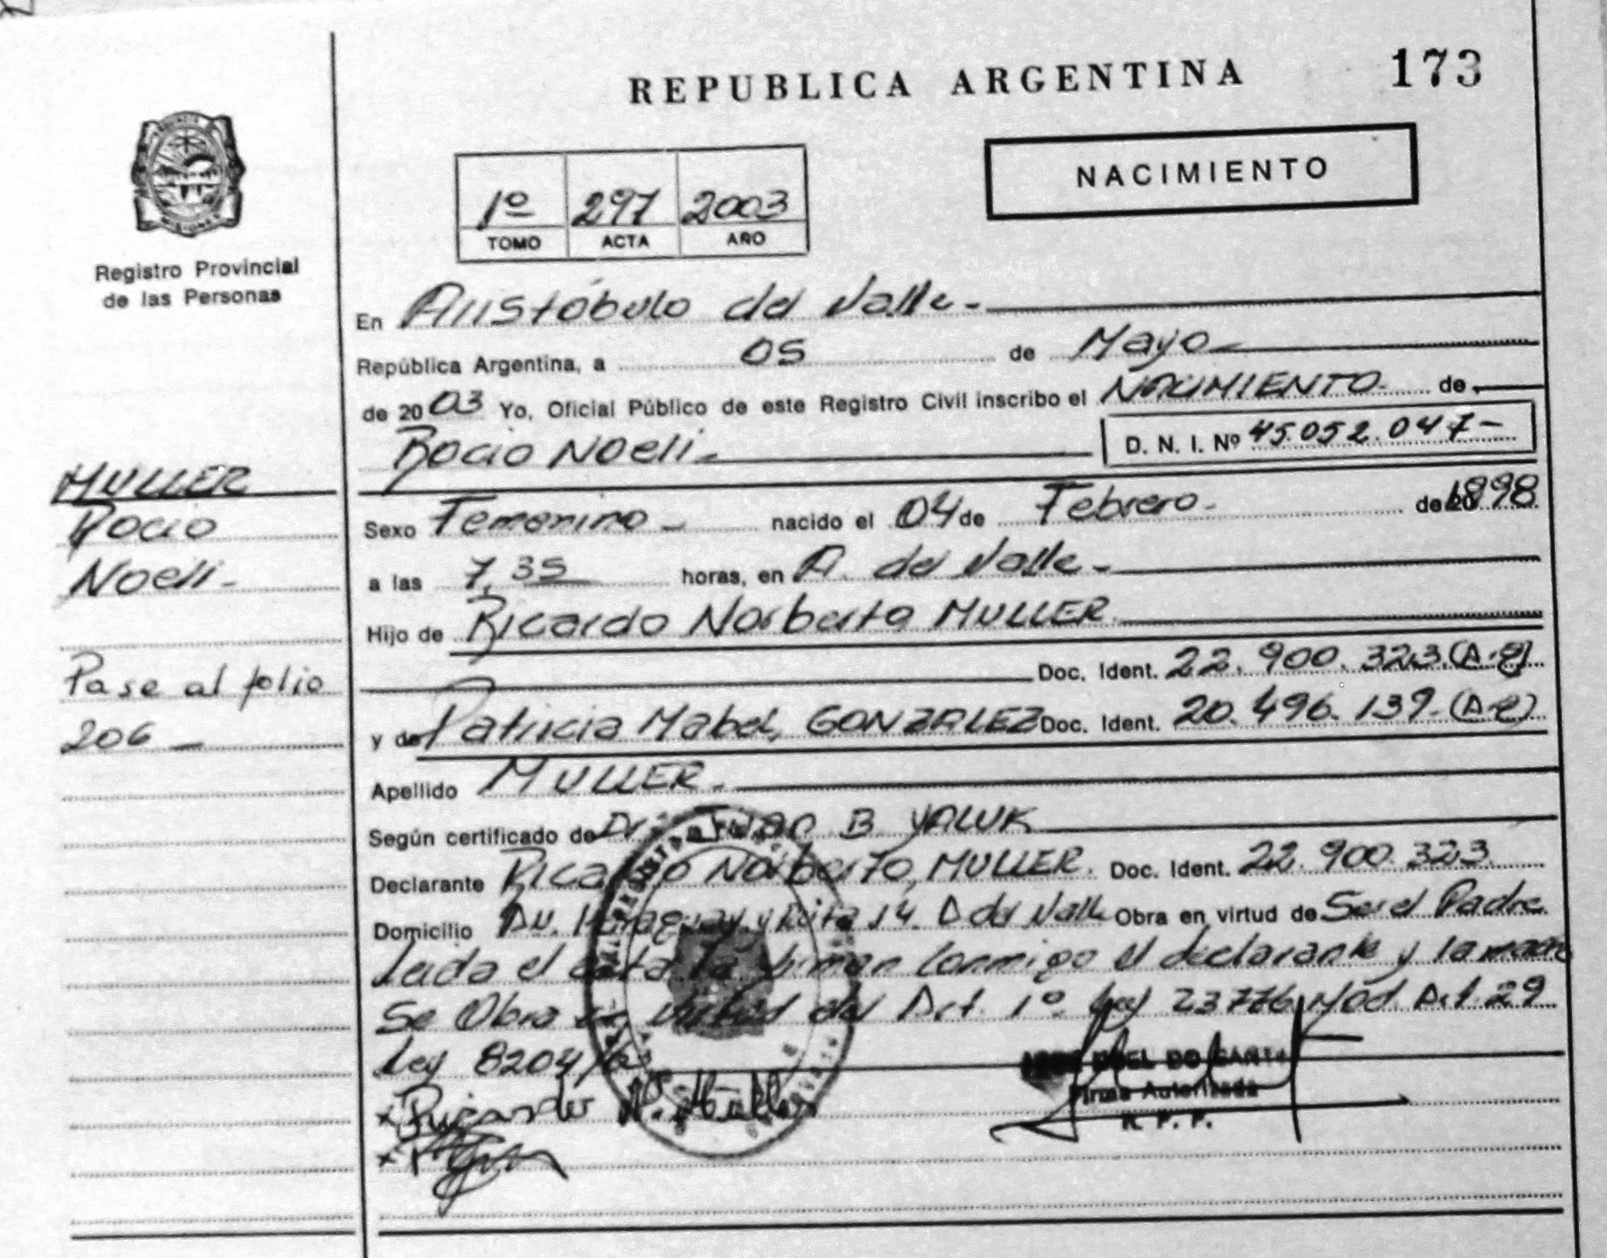 REPUBLICA ARGENTINA 173
NACIMIENTO
1º 297 2003
TOMO ACTA AÑO
Registro Provincial
de las Personas
En Aristóbulo del Valle-
República Argentina, a 05 de Mayo
de 2003 Yo, Oficial Público de este Registro Civil inscribo el NACIMIENTO de
Rocio Noeli- D. N. I. Nº 45.052.047-
MULLER
Rocio
Noeli-
Pase al folio
206-
Sexo Femenino- nacido el 04 de Febrero- de 1998
a las 7,35 horas, en A. del Valle-
Hijo de Ricardo Norberto MULLER
Doc. Ident. 22.900.323.
y de Patricia Mabel, GONZALEZ Doc. Ident. 20.496.139.
Apellido MULLER-
Según certificado de B YALUK
Declarante Ricardo Norberto, MULLER. Doc. Ident. 22.900.323
Domicilio Av. Paraguay y Ruta 14. A del Valle Obra en virtud de Ser el Padre
Leida el acta la firman conmigo el declarante y la madre
Se Obra en virtud del Art. 1º Ley 23776 Mod Art. 29
Ley 8204/63
Ricardo N. Müller
Firma Autorizada
R. P. P.